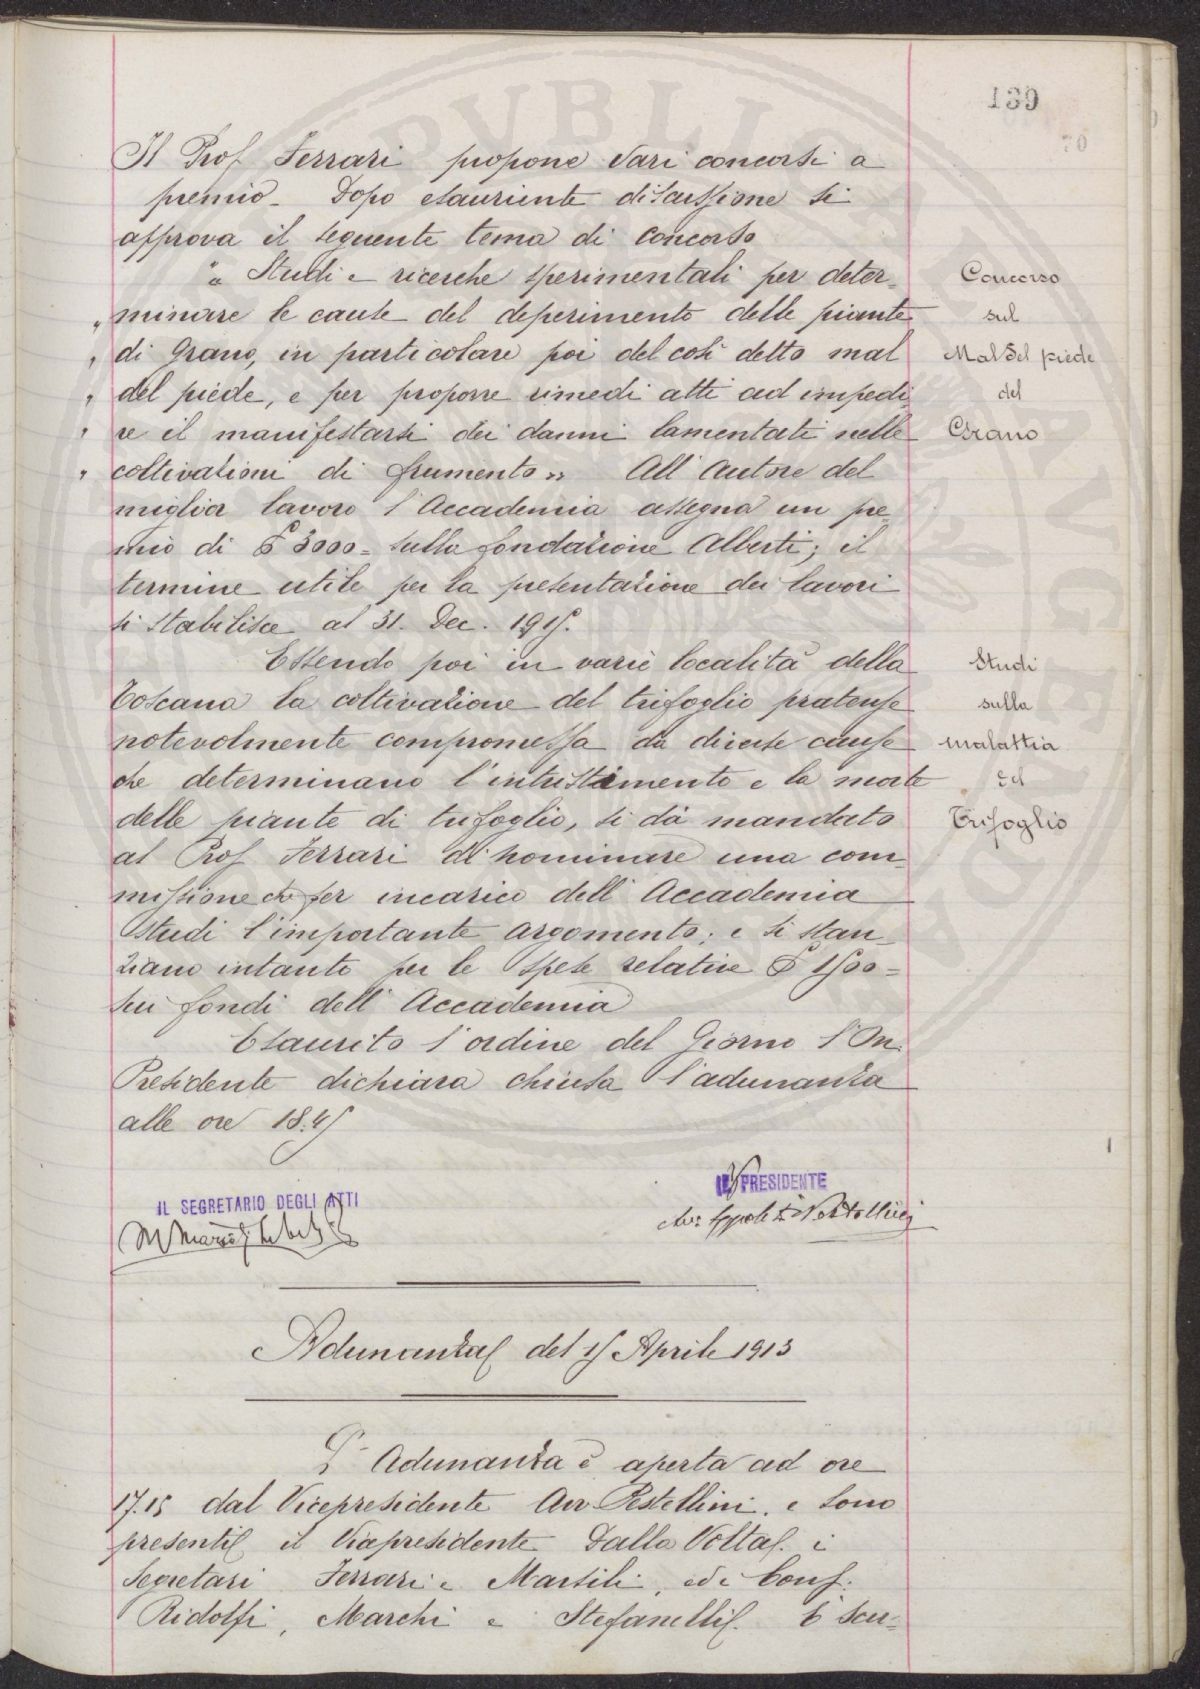 139
70
Il Prof Ferrari propone vari concorsi a
premio - Dopo esauriente discussione si
approva il seguente tema di concorso
" Studi e ricerche sperimentali per deter-
" minare le cause del deperimento delle piante
" di Grano, in particolare poi del così detto mal
" del piede, e per proporre rimedi atti ad impedi
" re il manifestarsi dei danni lamentati nelle
" coltivazioni di frumento" All'Autore del
miglior lavoro l'Accademia assegna un pre-
mio di £ 3000 = sulla fondazione Alberti; il
termine utile per la presentazione dei lavori
si stabilisce al 31. Dec. 1915.
Concorso
sul
Mal del piede
del
Grano
Essendo poi in varie località della
Toscana la coltivazione del trifoglio pratense
notevolmente compromessa da diverse cause
che determinano l'intristimento e la morte
delle piante di trifoglio, si dà mandato
al Prof Ferrari di nominare una com-
missione che per incarico dell'Accademia
studi l'importante argomento; e si stan-
ziano intanto per le spese relative £ 1500 =
sui fondi dell'Accademia
Studi
sulla
malattia
del
Trifoglio
Esaurito l'ordine del Giorno l'On.
Presidente dichiara chiusa l'adunanza
alle ore 18.45
IL SEGRETARIO DEGLI ATTI
IL V PRESIDENTE
Adunanza del 15 Aprile 1913
L'Adunanza è aperta ad ore
17.15 dal Vicepresidente Avv Pestellini. e sono
presenti il Vicepresidente Dalla Volta. i
Segretari Ferrari e Marsili, ed i Cons.
Ridolfi, Marchi e Stefanelli. È scu-